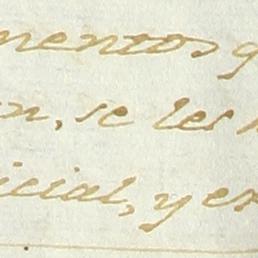 mentos q
n, se les
icial, y es